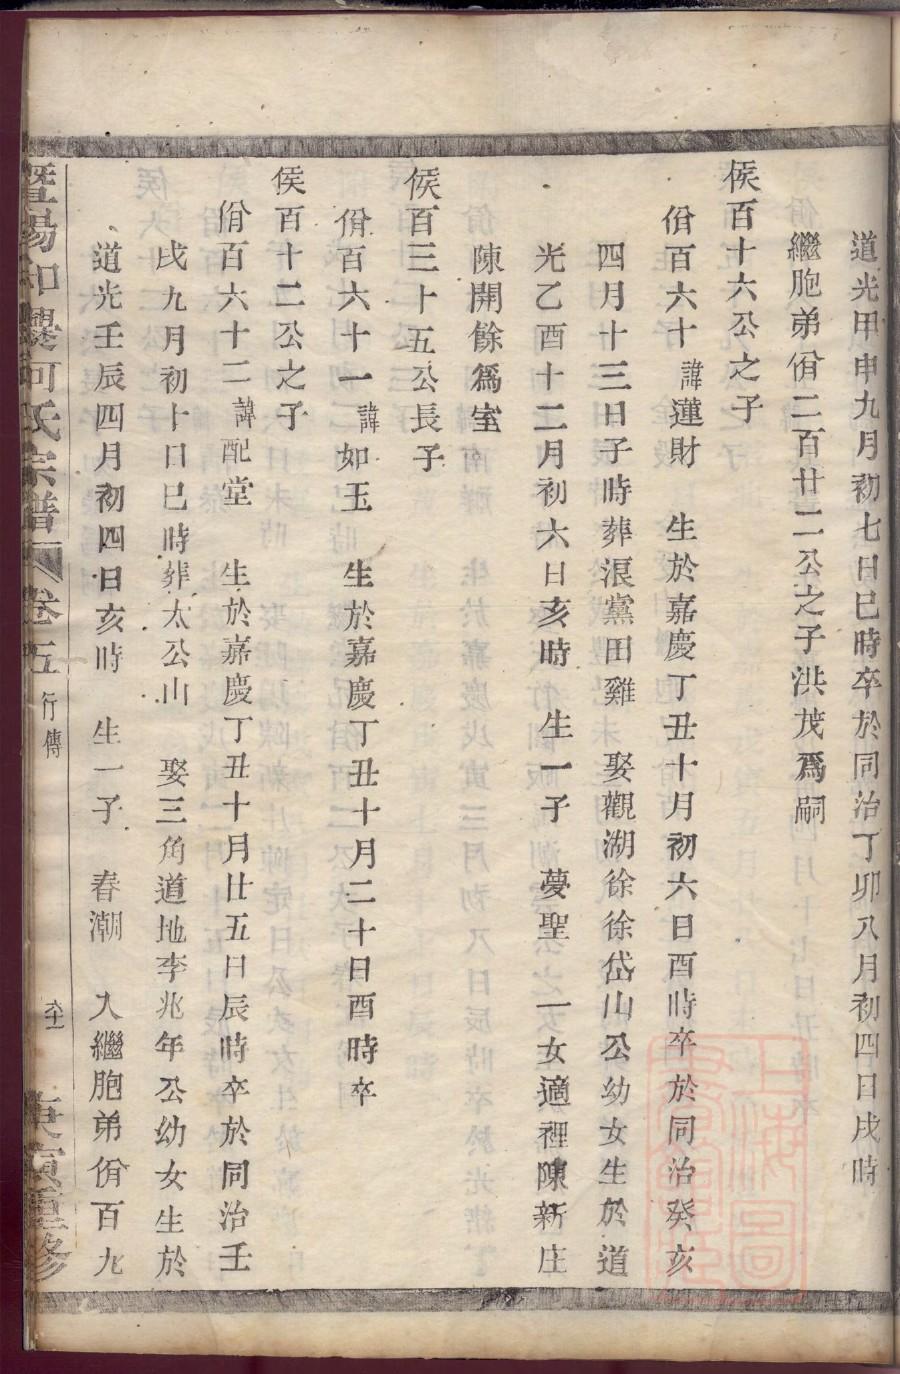 道光甲申九月初七日巳時卒於同治丁卯八月初四日戌時
繼胞弟佾二百廿二公之子洪茂爲嗣
侯百十六公之子
佾百六十 諱蓮財 生於嘉慶丁丑十月初六日酉時卒於同治癸亥
四月十三日子時葬浿黨田雞 娶觀湖徐徐岱山公幼女生於道
光乙酉十二月初六日亥時 生一子 夢聖 一女適裡陳新庄
陳開餘爲室
侯百三十五公長子
佾百六十一 諱如玉 生於嘉慶丁丑十月二十日酉時卒
侯百十二公之子
佾百六十二 諱配堂 生於嘉慶丁丑十月廿五日辰時卒於同治壬
戌九月初十日巳時葬太公山 娶三角道地李兆年公幼女生於
道光壬辰四月初四日亥時 生一子 春潮 入繼胞弟佾百九
暨陽和 何氏宗譜 卷五 行傳 六十一 重修